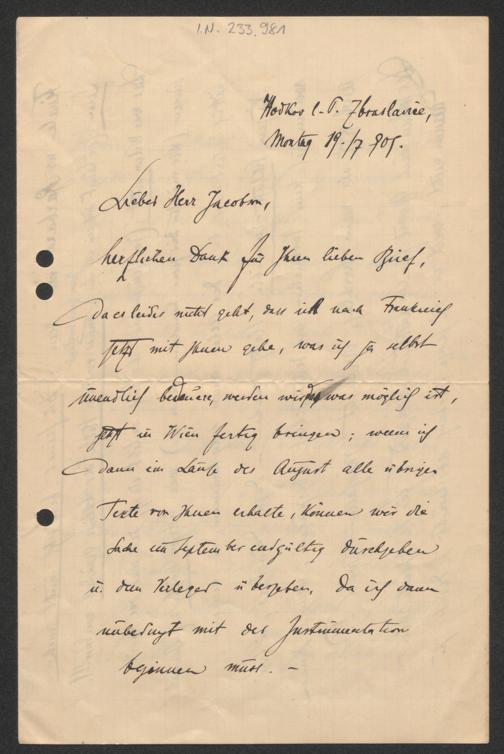 I.N. 233.981
Hodkov l. P. Zbraslavice,
Montag 19./7 909.
Lieber Herr Jacobson,
herzlichen Dank für Ihren lieben Brief,
Da es leider nicht geht, dass ich nach Frankreich
jetzt mit Ihnen gehe, was ich ja selbst
unendlich bedauere, werden wir was möglich ist,
jetzt in Wien fertig bringen; wenn ich
dann im Laufe des August alle übrigen
Texte von Ihnen erhalte, können wir die
Sache im September endgültig durchgehen
u. dem Verleger übergeben, da ich dann
unbedingt mit der Instrumentation
beginnen muss. –